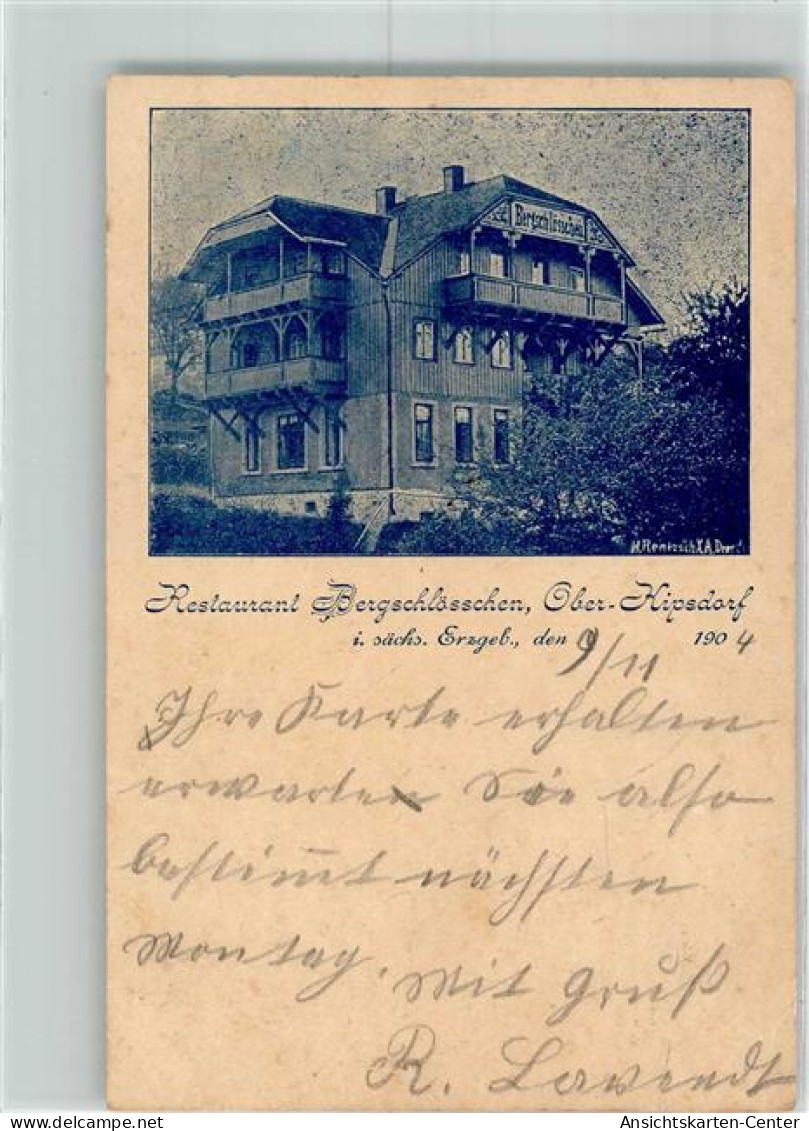 Bergschlösschen
Restaurant Bergschlösschen, Ober-Kipsdorf
i. sächs. Erzgeb., den 9/11 1904
Ihre Karte erhalten
erwarten Sie also
bestimmt nächsten
Montag. Mit Gruß
R.
Ansichtskarten-Center